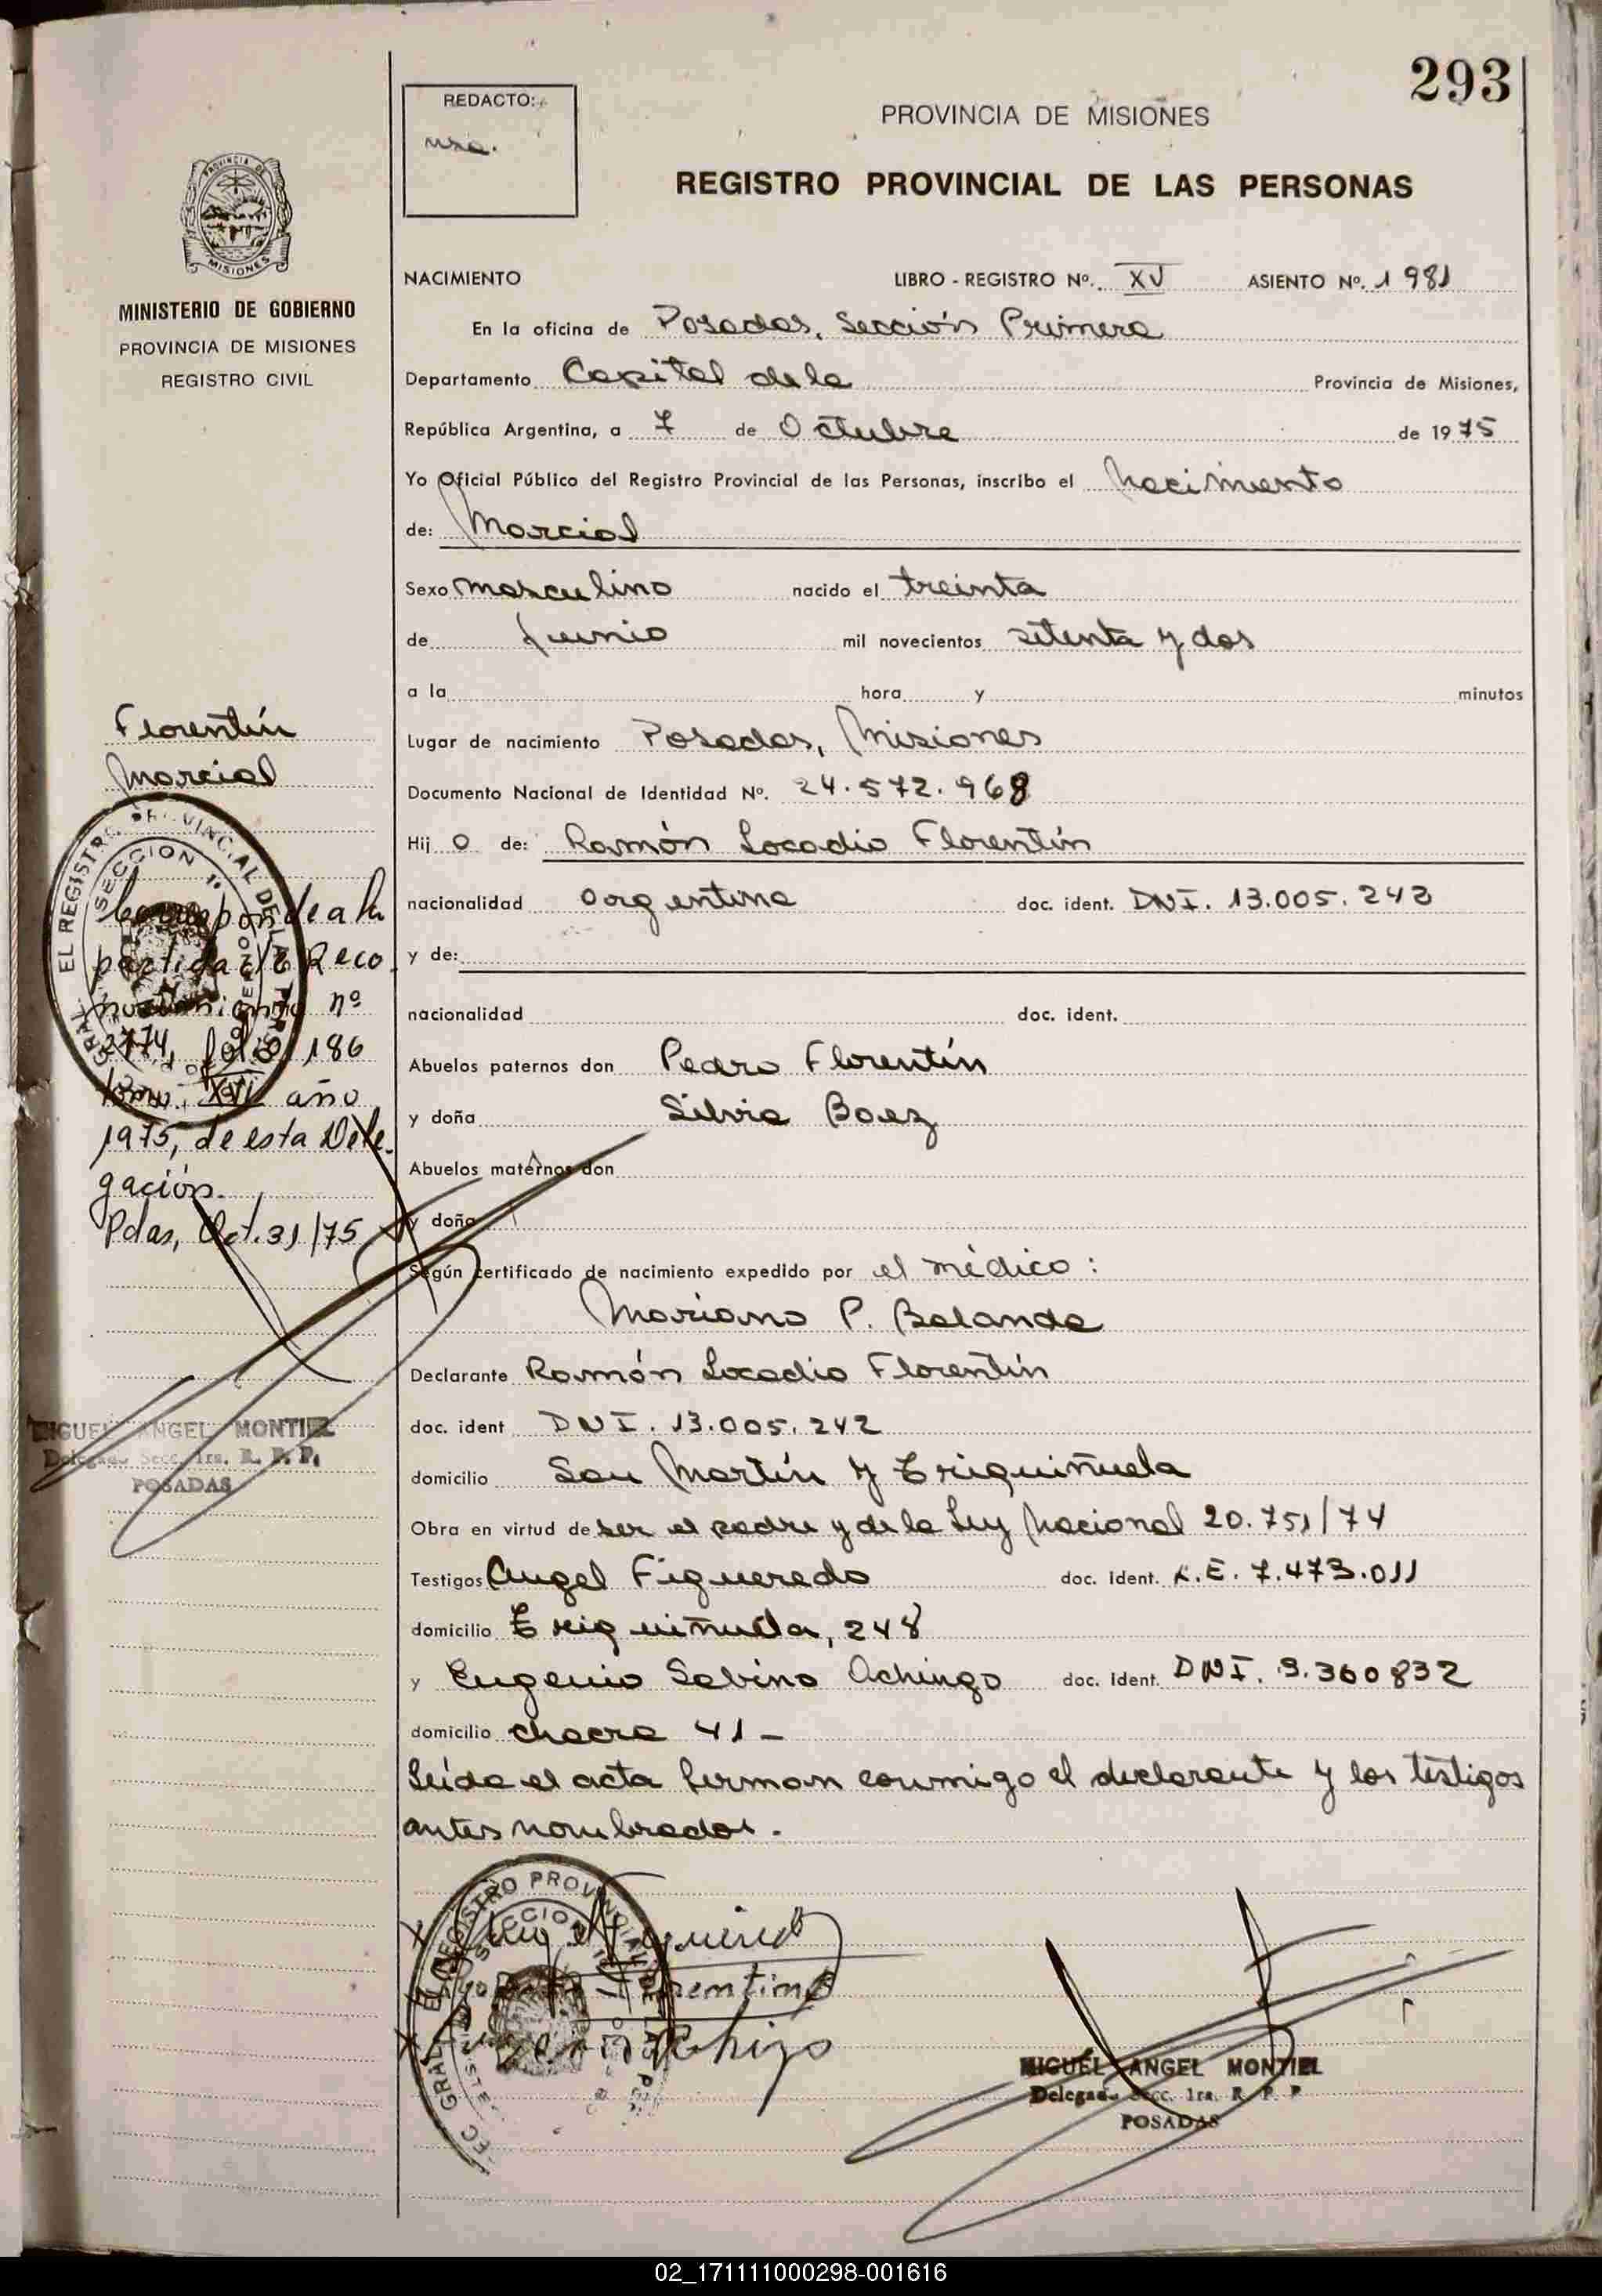 293
REDACTO:
PROVINCIA DE MISIONES
REGISTRO PROVINCIAL DE LAS PERSONAS
PROVINCIA DE
MISIONES
MINISTERIO DE GOBIERNO
PROVINCIA DE MISIONES
REGISTRO CIVIL
NACIMIENTO LIBRO - REGISTRO Nº. XV ASIENTO Nº. 1981
En la oficina de Posadas, Sección Primera
Departamento Capital de la Provincia de Misiones,
República Argentina, a 7 de Octubre de 1975
Yo Oficial Público del Registro Provincial de las Personas, inscribo el Nacimiento
de: Marcial
Sexo masculino nacido el treinta
de Junio mil novecientos setenta y dos
a la hora y minutos
Lugar de nacimiento Posadas, Misiones
Documento Nacional de Identidad Nº. 24.572.968
Hij o de: Ramón Locadio Florentín
nacionalidad argentina doc. ident. DNI. 13.005.242
y de:
nacionalidad doc. ident.
Abuelos paternos don Pedro Florentín
y doña Silvia Baez
Abuelos maternos don
y doña
Según certificado de nacimiento expedido por el médico:
Mariano P. Balanda
Declarante Ramón Locadio Florentín
doc. ident DNI. 13.005.242
domicilio San Martín y Eriquiñuela
Obra en virtud de ser el padre y de la Ley Nacional 20.751/74
Testigos Angel Figueredo doc. ident. L.E. 7.473.011
domicilio Eriquiñuela, 248
y Eugenio Sabino Achingo doc. ident. DNI. 9.360832
domicilio chacra 41 -
Leída el acta firman conmigo el declarante y los testigos
antes nombrados.
Florentín
Marcial
Corresponde a la
partida de Reco
nocimiento nº
2774, folio 186
tomo XVI año
1975, de esta Dele-
gación.
Pdas, Oct. 31/75
MIGUEL ANGEL MONTIEL
Delegado Secc. 1ra. R. P. P.
POSADAS
EL REGISTRO PROVINCIAL DE LAS
SECCION 1º
MIGUEL ANGEL MONTIEL
Delegado Secc. 1ra. R. P. P
POSADAS
02_171111000298-001616